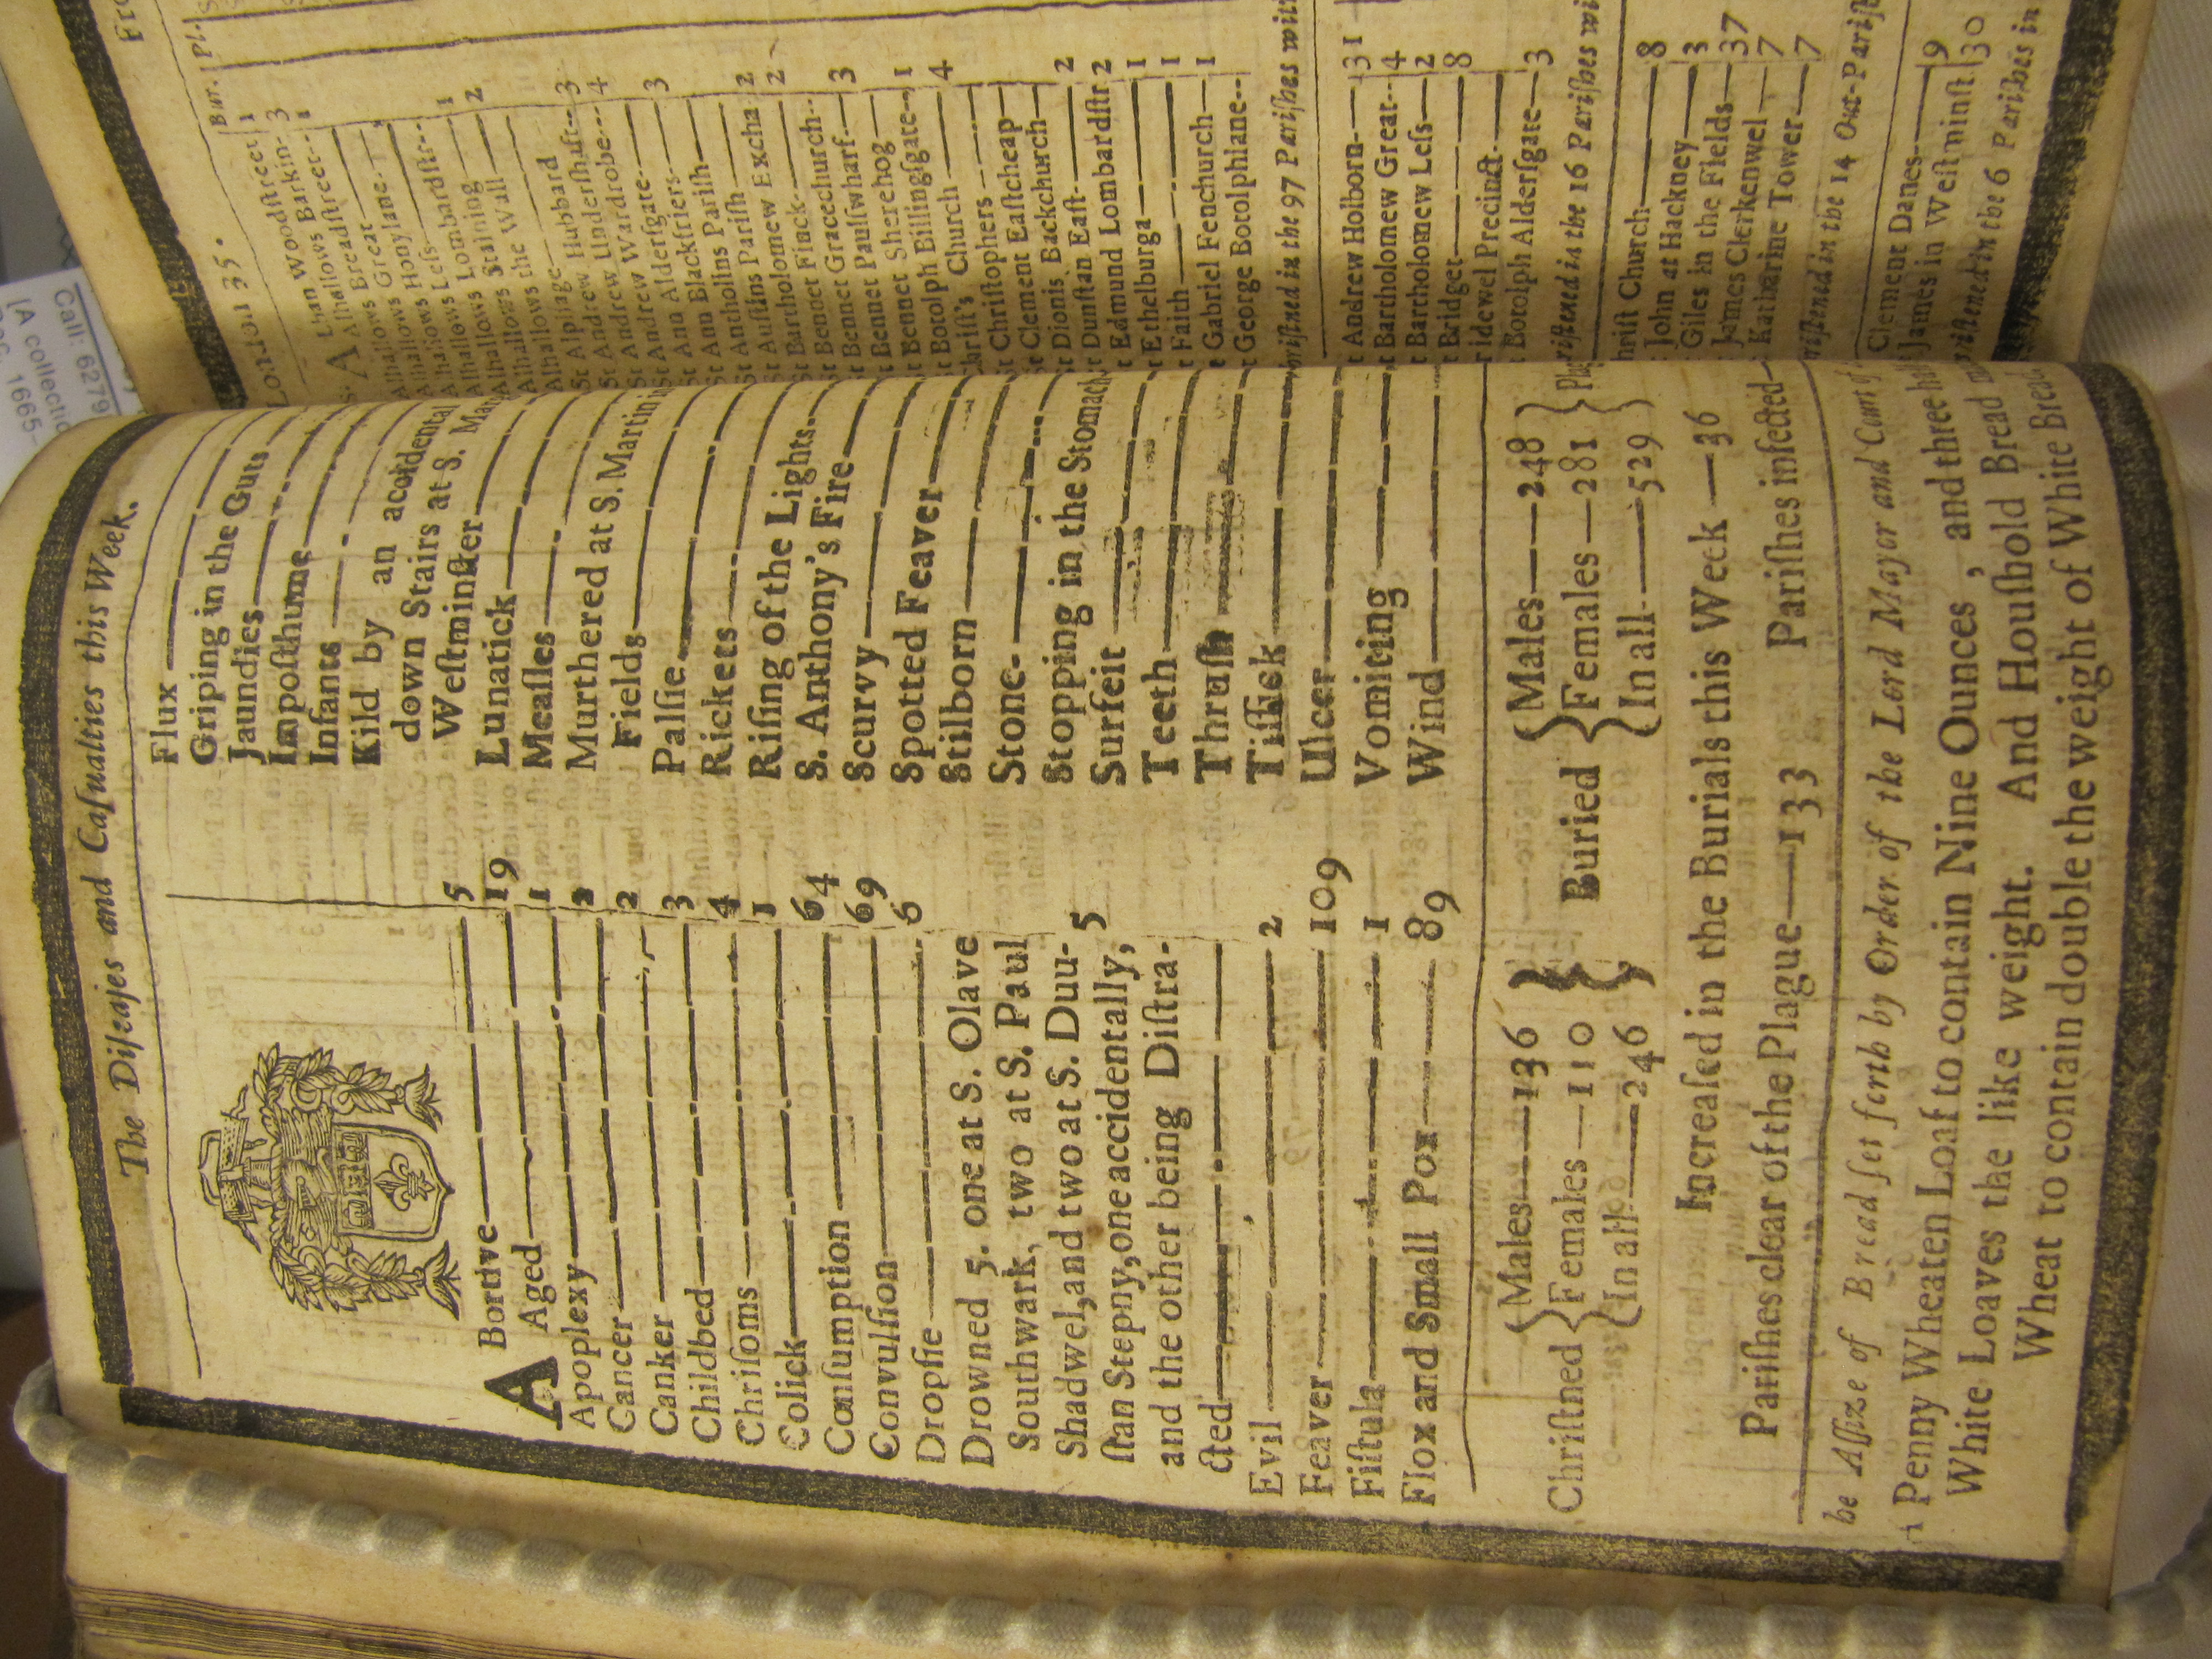 The Diſeaſes and Caſualties this Week.
ABortive 5
Aged 19
Apoplexy 1
Cancer 2
Canker 2
Childbed 3
Chriſoms 4
Colick 1
Conſumption 64
Convulſion 69
Dropſie 6
Drowned 5. one at S. Olave
Southwark, two at S. Paul
Shadwel, and two at S. Duu-
ſtan Stepny, one accidentally, 5
and the other being Diſtra-
cted
Evil 2
Feaver 109
Fiſtula 1
Flox and Small Pox 89
Flux
Griping in the Guts
Jaundies
Impoſthume
Infants
Kild by an accidental
down Stairs at S. Mar
Weſtminſter
Lunatick
Meaſles
Murthered at S. Martin i
Fields
Palſie
Rickets
Riſing of the Lights
S. Anthony's Fire
Scurvy
Spotted Feaver
Stilborn
Stone
Stopping in the Stomach
Surfeit
Teeth
Thruſh
Tiſſick
Ulcer
Vomiting
Wind
Chriſtned { Males 136 Females 110 In all 246 }
Buried { Males 248 Females 281 In all 529 }
Increaſed in the Burials this Week 36
Pariſhes clear of the Plague 133 Pariſhes infected
he Aſſize of Bread ſet forth by Order of the Lord Mayor and Court of
A Penny Wheaten Loaf to contain Nine Ounces, and three hal
White Loaves the like weight. And Houſhold Bread
Wheat to contain double the weight of White Brea
London 35.
Fro
Bur. Pl.
S. ALhan Woodſtreet 1
Alhallows Barkin 3
Alhallows Breadſtreet 1
Alhallows Great
Alhallows Honylane
Alhallows Leſs
Alhallows Lombardſtr 1
Alhallows Staining 2
Alhallows the Wall
St Alphage
St Andrew Hubbard
St Andrew Underſhaft 3
St Andrew Wardrobe 4
St Ann Alderſgate
St Ann Blackfriers 3
St Antholins Pariſh
St Auſtins Pariſh
St Bartholomew Excha 2
St Bennet Finck 2
St Bennet Gracechurch
St Bennet Paulſwharf 3
St Bennet Sherehog
St Botolph Billingſgate 1
Chriſt's Church 4
St Chriſtophers
St Clement Eaſtcheap
St Dionis Backchurch
St Dunſtan Eaſt 2
St Edmund Lombardſtr 2
St Ethelburga 1
St Faith 1
St Gabriel Fenchurch 1
St George Botolphlane
hriſtned in the 97 Pariſhes wit
t Andrew Holborn 31
t Bartholomew Great 4
t Bartholomew Leſs 2
t Bridget 8
ridewel Precinct
t Botolph Alderſgate 3
riſtened in the 16 Pariſhes wi
hriſt Church 8
John at Hackney 3
Giles in the Fields 37
James Clerkenwel 7
Katharine Tower 7
riſtened in the 14 Out-Pariſ
Clement Danes 9
James in Weſtminſt 30
riſtened in the 6 Pariſhes in
Call: 6279
IA collectio
1665-